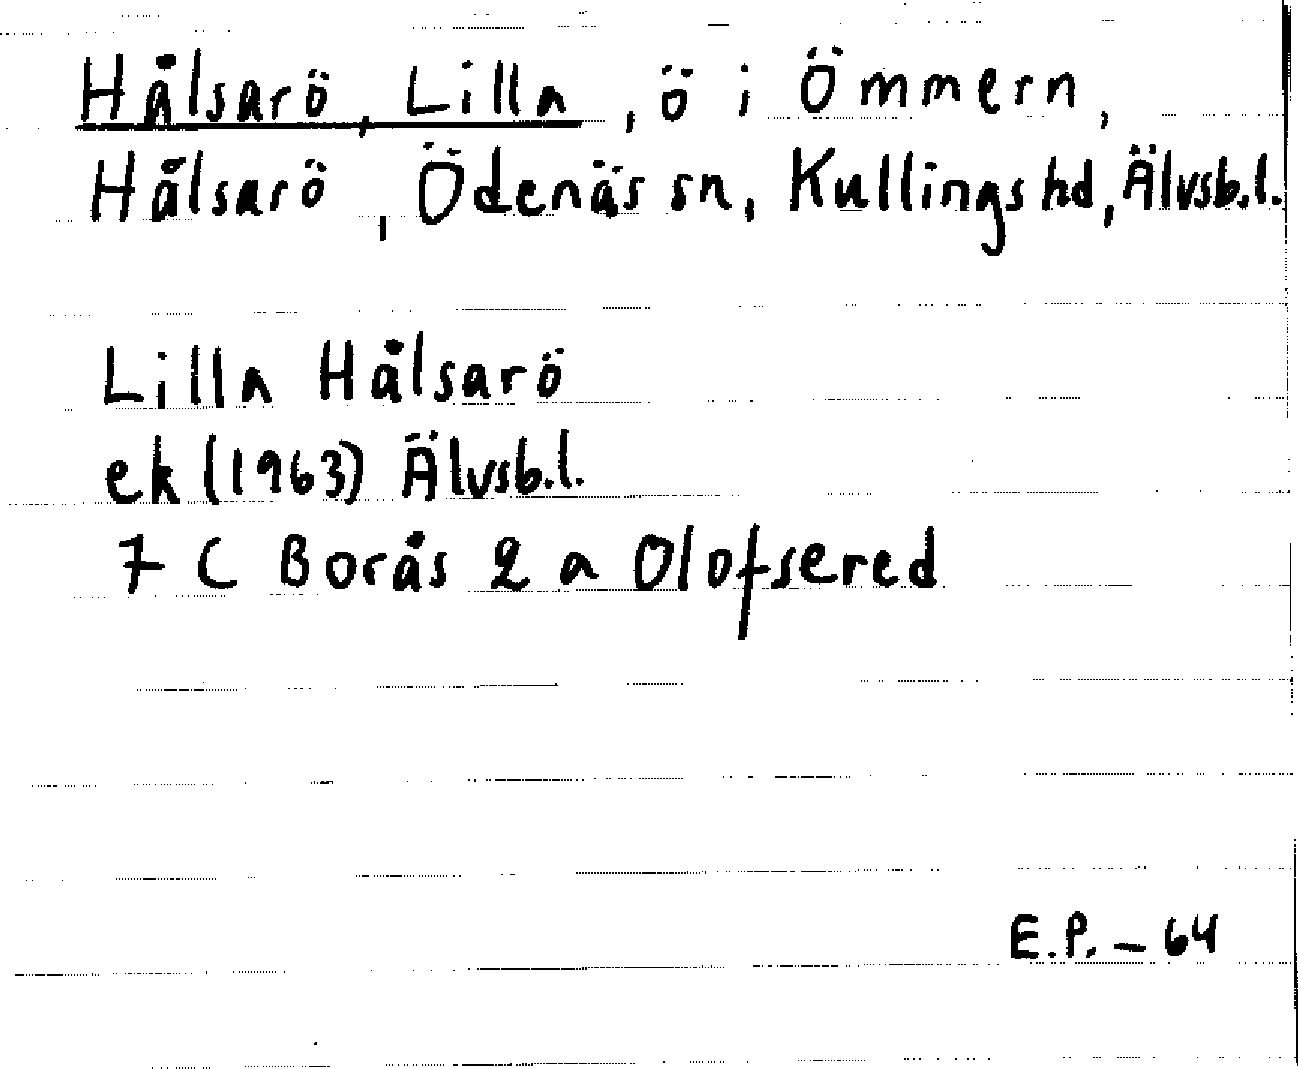 Hålsarö, Lilla, ö i Ömmern,
Hålsarö, Ödenäs sn, Kullings hd, Älvsb.l.
Lilla Hålsarö
ek (1963) Älvsb.l.
7 C Borås 2 a Olofsered
E.P. – 64